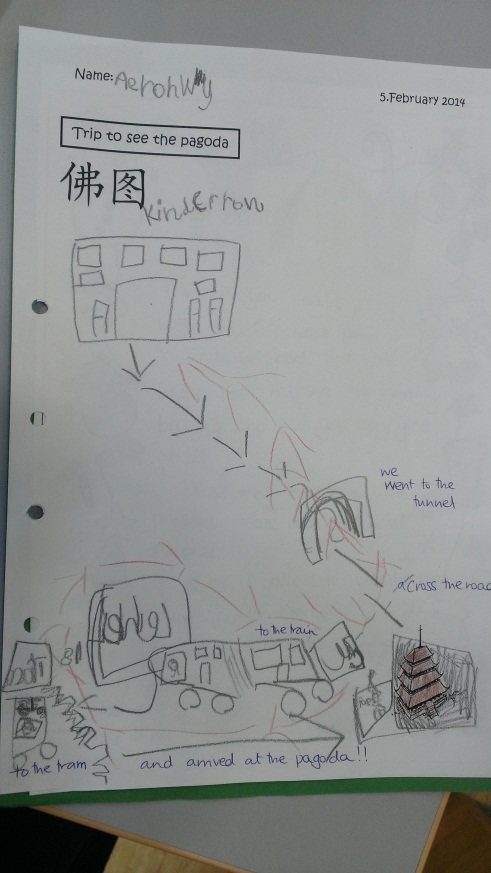 Name: Aeronwy
5.February 2014
Trip to see the pagoda
佛图
we
went to the
tunnel
across the road
to the train
to the tram
and arrived at the pagoda!!